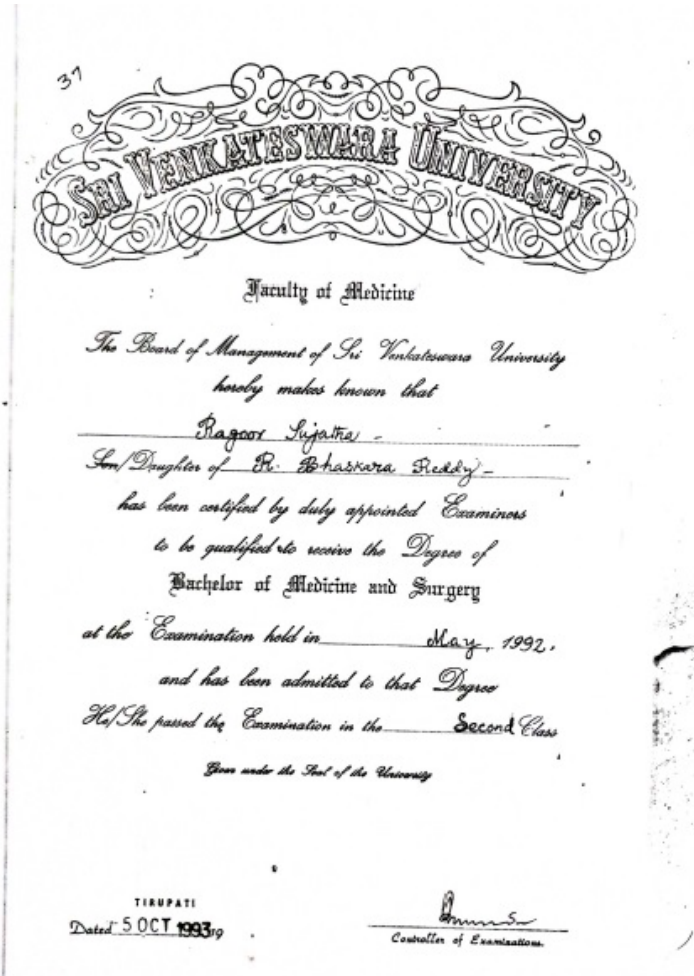 37
SRI VENKATESWARA UNIVERSITY
Faculty of Medicine
The Board of Management of Sri Venkateswara University
hereby makes known that
Ragoor Sujatha -
Son/Daughter of R. Bhaskara Reddy -
has been certified by duly appointed Examiners
to be qualified to receive the Degree of
Bachelor of Medicine and Surgery
at the Examination held in May, 1992.
and has been admitted to that Degree
He/She passed the Examination in the Second Class
Given under the Seal of the University
TIRUPATI
Dated 5 OCT 1993 19
Controller of Examinations.